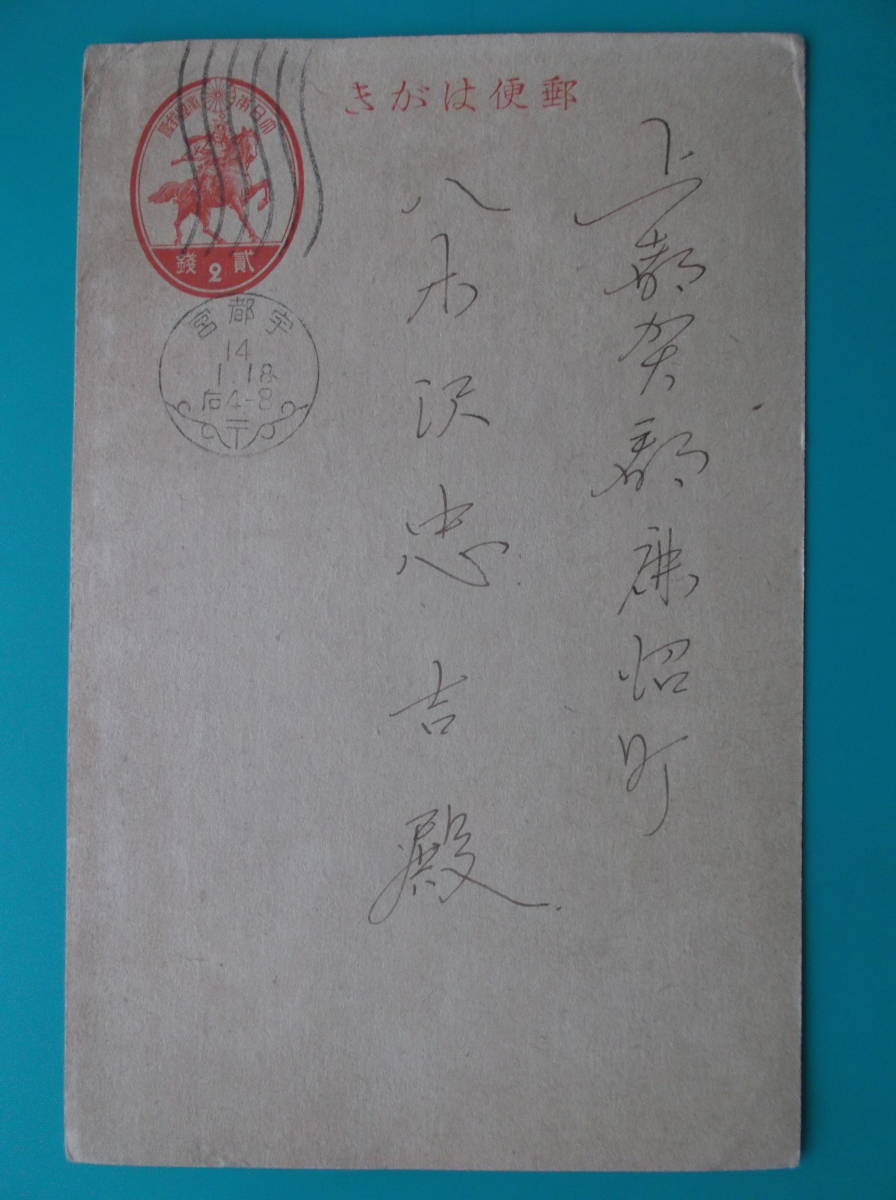 きがは便郵
大日本帝國郵便
錢2貳
宮都宇
14
1.18
后4-8
〒
上都賀郡鹿沼町
八木沢忠吉殿